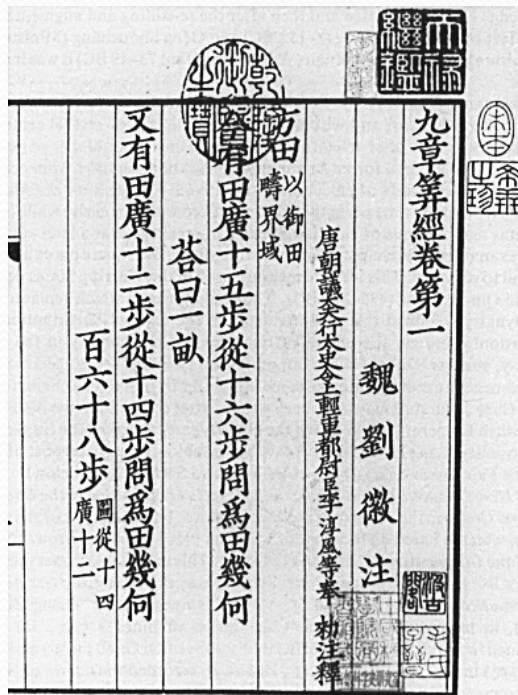 天祿繼鑑
乾隆御覽之寶
宋本
九章筭經卷第一
魏劉徽注
唐朝議大夫行太史令上輕車都尉臣李淳風等奉 勑注釋
方田以御田
疇界域
今有田廣十五步從十六步問爲田幾何
荅曰一畝
又有田廣十二步從十四步問爲田幾何
百六十八步圖從十四
廣十二